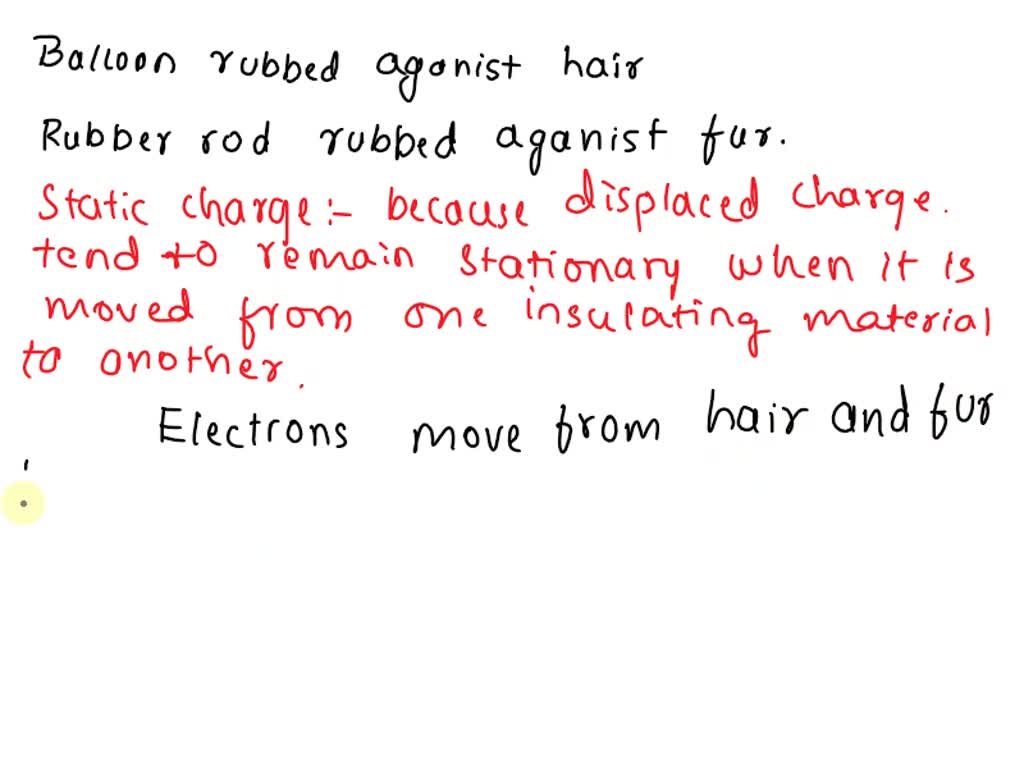 Balloon rubbed agonist hair
Rubber rod rubbed aganist fur.
Static charge:- because displaced charge.
tend to remain stationary when it is
moved from one insulating material
to another.
Electrons move from hair and fur